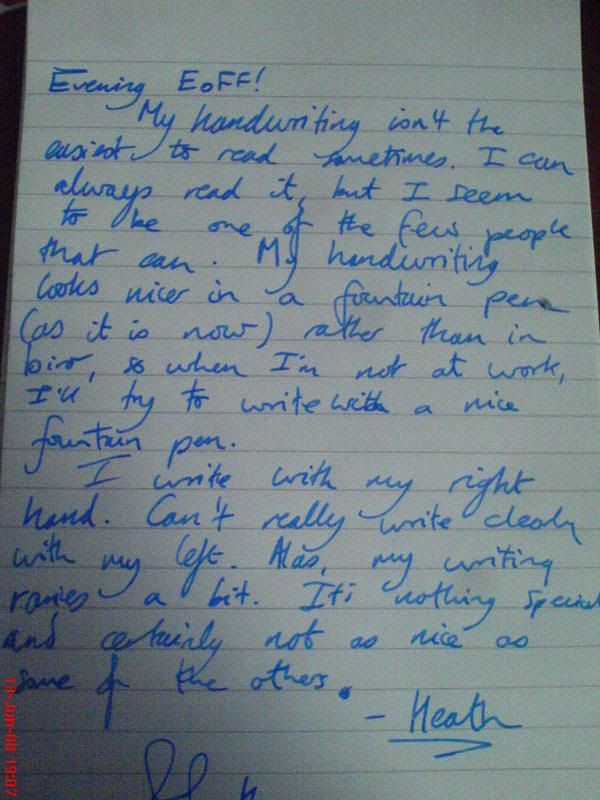 Evening EoFF!
My handwriting isn't the
easiest to read sometimes. I can
always read it, but I seem
to be one of the few people
that can. My handwriting
looks nicer in a fountain pen
(as it is now) rather than in
biro, so when I'm not at work,
I'll try to write with a nice
fountain pen.
I write with my right
hand. Can't really write clearly
with my left. Alas, my writing
varies a bit. It's nothing special
and certainly not as nice as
some of the others.
- Heath
13-Jun-08 19:07